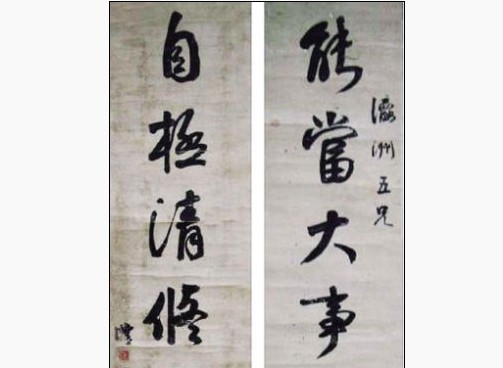 瀛洲五兄
能當大事
自極清修